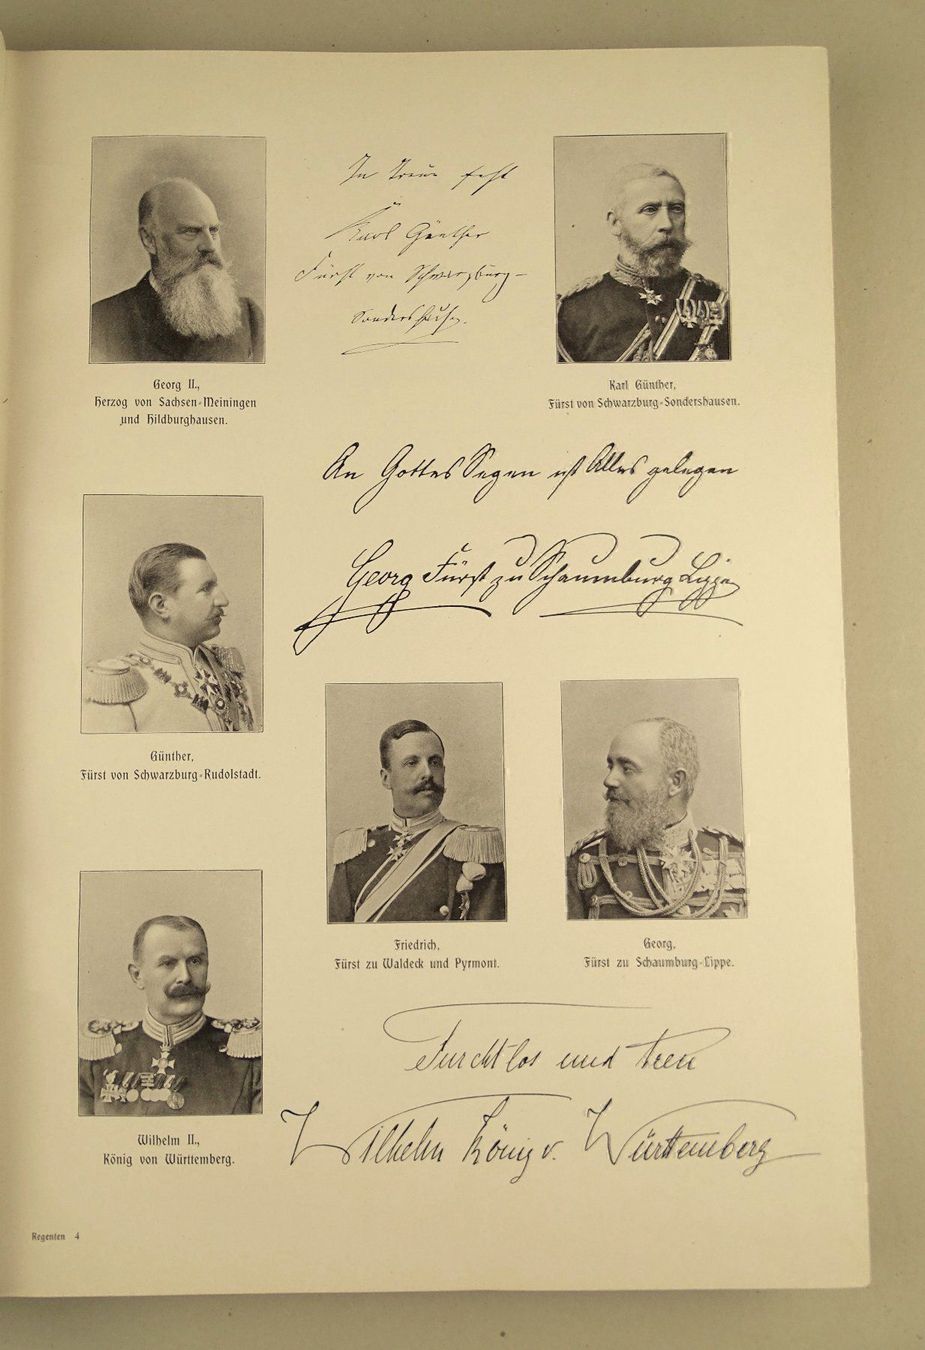 In Treue fest
Karl Günther
Fürst von Schwarzburg-
Sondershausen.
Georg II.,
Herzog von Sachsen-Meiningen
und Hildburghausen.
Karl Günther,
Fürst von Schwarzburg-Sondershausen.
An Gottes Segen ist Alles gelegen
Georg Fürst zu Schaumburg Lippe
Günther,
Fürst von Schwarzburg-Rudolstadt.
Friedrich,
Fürst zu Waldeck und Pyrmont.
Georg,
Fürst zu Schaumburg-Lippe.
Furchtlos und treu
Wilhelm König v. Württemberg
Wilhelm II.,
König von Württemberg.
Regenten 4